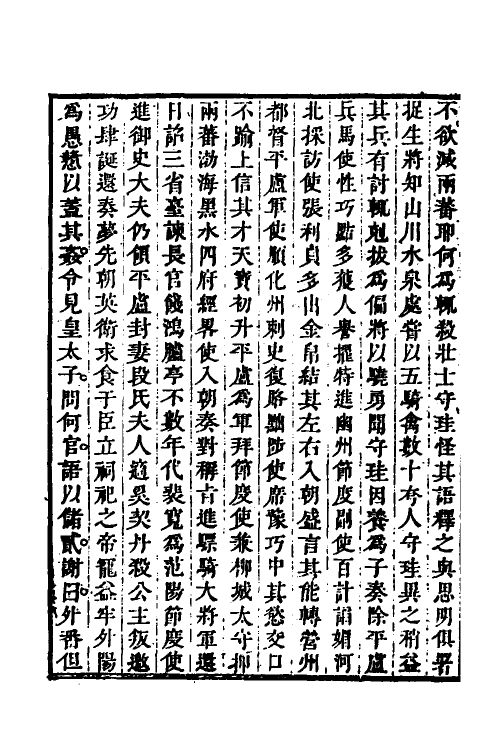 不欲滅兩蕃耶何爲輒殺壯士守珪怪其語釋之與思明俱署
捉生將知山川水泉處嘗以五騎禽數十奚人守珪異之稍益
其兵有討輒尅拔爲偏將以驍勇聞守珪因養爲子奏除平盧
兵馬使性巧黠多獲人譽擢特進幽州節度副使百計諂媚河
北採訪使張利貞多出金帛結其左右入朝盛言其能轉營州
都督平盧軍使順化州刺史復賂黜陟使席豫巧中其慾交口
不踰上信其才天寶初升平盧爲軍拜節度使兼柳城太守押
兩蕃渤海黑水四府經畧使入朝奏對稱旨進驃騎大將軍還
日詔三省臺諫長官餞鴻臚亭不數年代裴寬爲范陽節度使
進御史大夫仍領平盧封妻段氏夫人適奚契丹殺公主叛邀
功肆誕還奏夢先朝英衛求食于臣立祠祀之帝寵益牢外陽
爲愚憃以蓋其姦令見皇太子問何官語以儲貳謝曰外番但